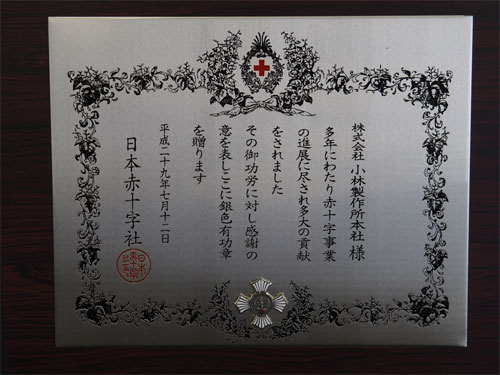 株式会社 小林製作所本社 様
多年にわたり赤十字事業
の進展に尽され多大の貢献
をされました
その御功労に対し感謝の
意を表しここに銀色有功章
を贈ります
平成二十九年七月十二日
日本赤十字社